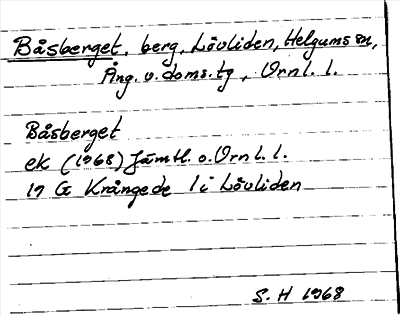 Båsberget, berg, Lövliden, Helgums sn,
Ång. v. doms. tg, Vrnl. l.
Båsberget
ek (1968) Jämtl. o. Vrnl. l.
19 G Krångede 1 i Lövliden
S. H 1968